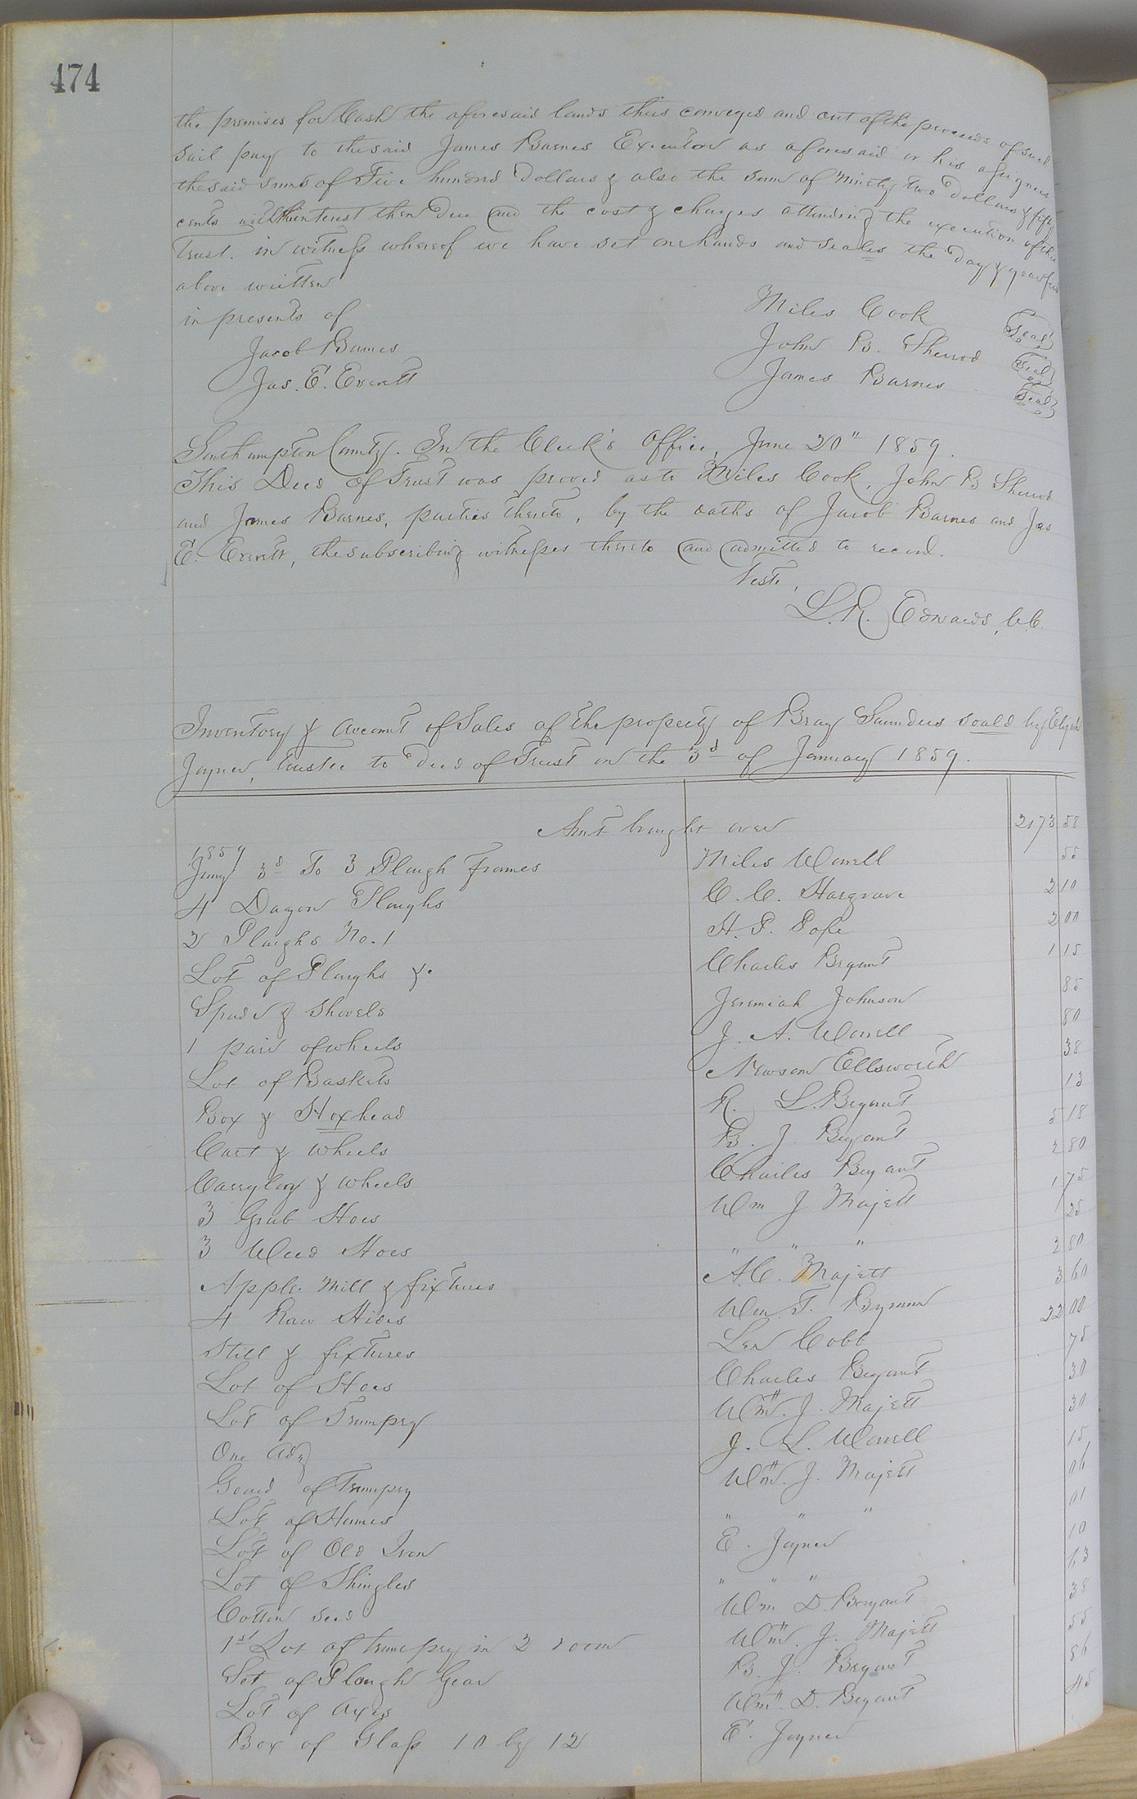 474
the premises for Cash the aforesaid lands thus conveyed and out of the proceeds of such
sail pay to the said James Barnes Executor as aforesaid or his assignees
the said sums of Five hundred Dollars & also the sum of Ninety two Dollars & fifty
cents with interest then Due and the cost & charges attending the execution of this
Trust. in witness whereof we have set our hands and seales the Day & year first
above written
in presents of Miles Cook (Seal)
Jacob Barnes John B. Sherrod (Seal)
Jas. E. Everett James Barnes (Seal)
Southampton County. In the Clerk's Office, June 20" 1859.
This Deed of Trust was proved as to Miles Cook, John B Sherrod
and James Barnes, parties thereto, by the oaths of Jacob Barnes and Jas
E. Everett, the subscribing witnesses thereto and admitted to record.
Teste,
L. R. Edwards, C.C.
Inventory & account of Sales of the property of Bray Saunders sould by Elijah
Joyner, trustee to Deed of Trust on the 3d of January 1859.
Amt brought over 2173 58
1859
Jany 3d To 3 Plough frames Miles Worrell 55
4 Dagon Ploughs C. C. Hargrave 2 10
2 Ploughs No. 1 H. P. Pope 2 00
Lot of Ploughs &. Charles Bryant 1 15
Spade & Shovels Jeremiah Johnson 85
1 pair of wheels J. A. Worrell 80
Lot of Baskets Newsom Ellsworth 38
Box & Hoxhead R. L. Bryant 13
Cart & Wheels B. J. Bryant 5 18
Carrylog & Wheels Charles Bryant 2 80
3 Grub Hoes Wm J Majett 1 75
3 Weed Hoes " " " 25
Apple Mill & fixtures A. C. Majett 2 80
4 Raw Hides Wm T. 3 60
Still & fixtures Lew Cobb 22 00
Lot of Hoes Charles Bryant 75
Lot of Trumpery Wm. J. Majett 30
One Adz J. L. Worrell 30
Gourd of Trumpery Wm. J. Majett 15
Lot of Hames " " " 06
Lot of Old Iron E. Joyner 01
Lot of Shingles " " " 10
Cotton seed Wm D. Bryant 63
1st Lot of trumpery in 2 room Wm. J. Majett 38
Set of Plough Gear B. J. Bryant 55
Lot of Axes Wm. D. Bryant 86
Box of Glass 10 by 12 E. Joyner 45